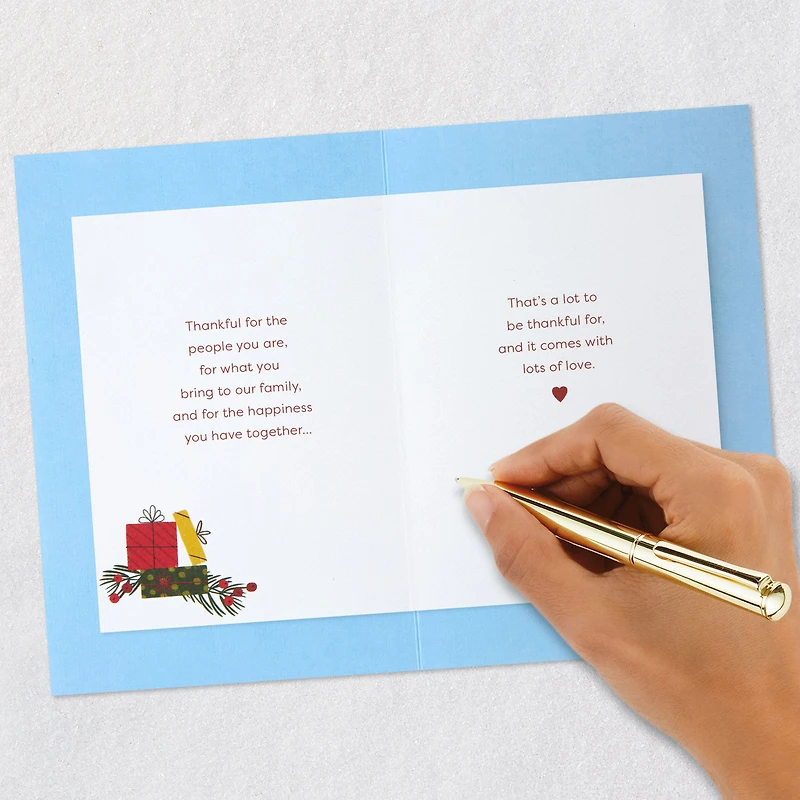 Thankful for the
people you are,
for what you
bring to our family,
and for the happiness
you have together...
That's a lot to
be thankful for,
and it comes with
lots of love.